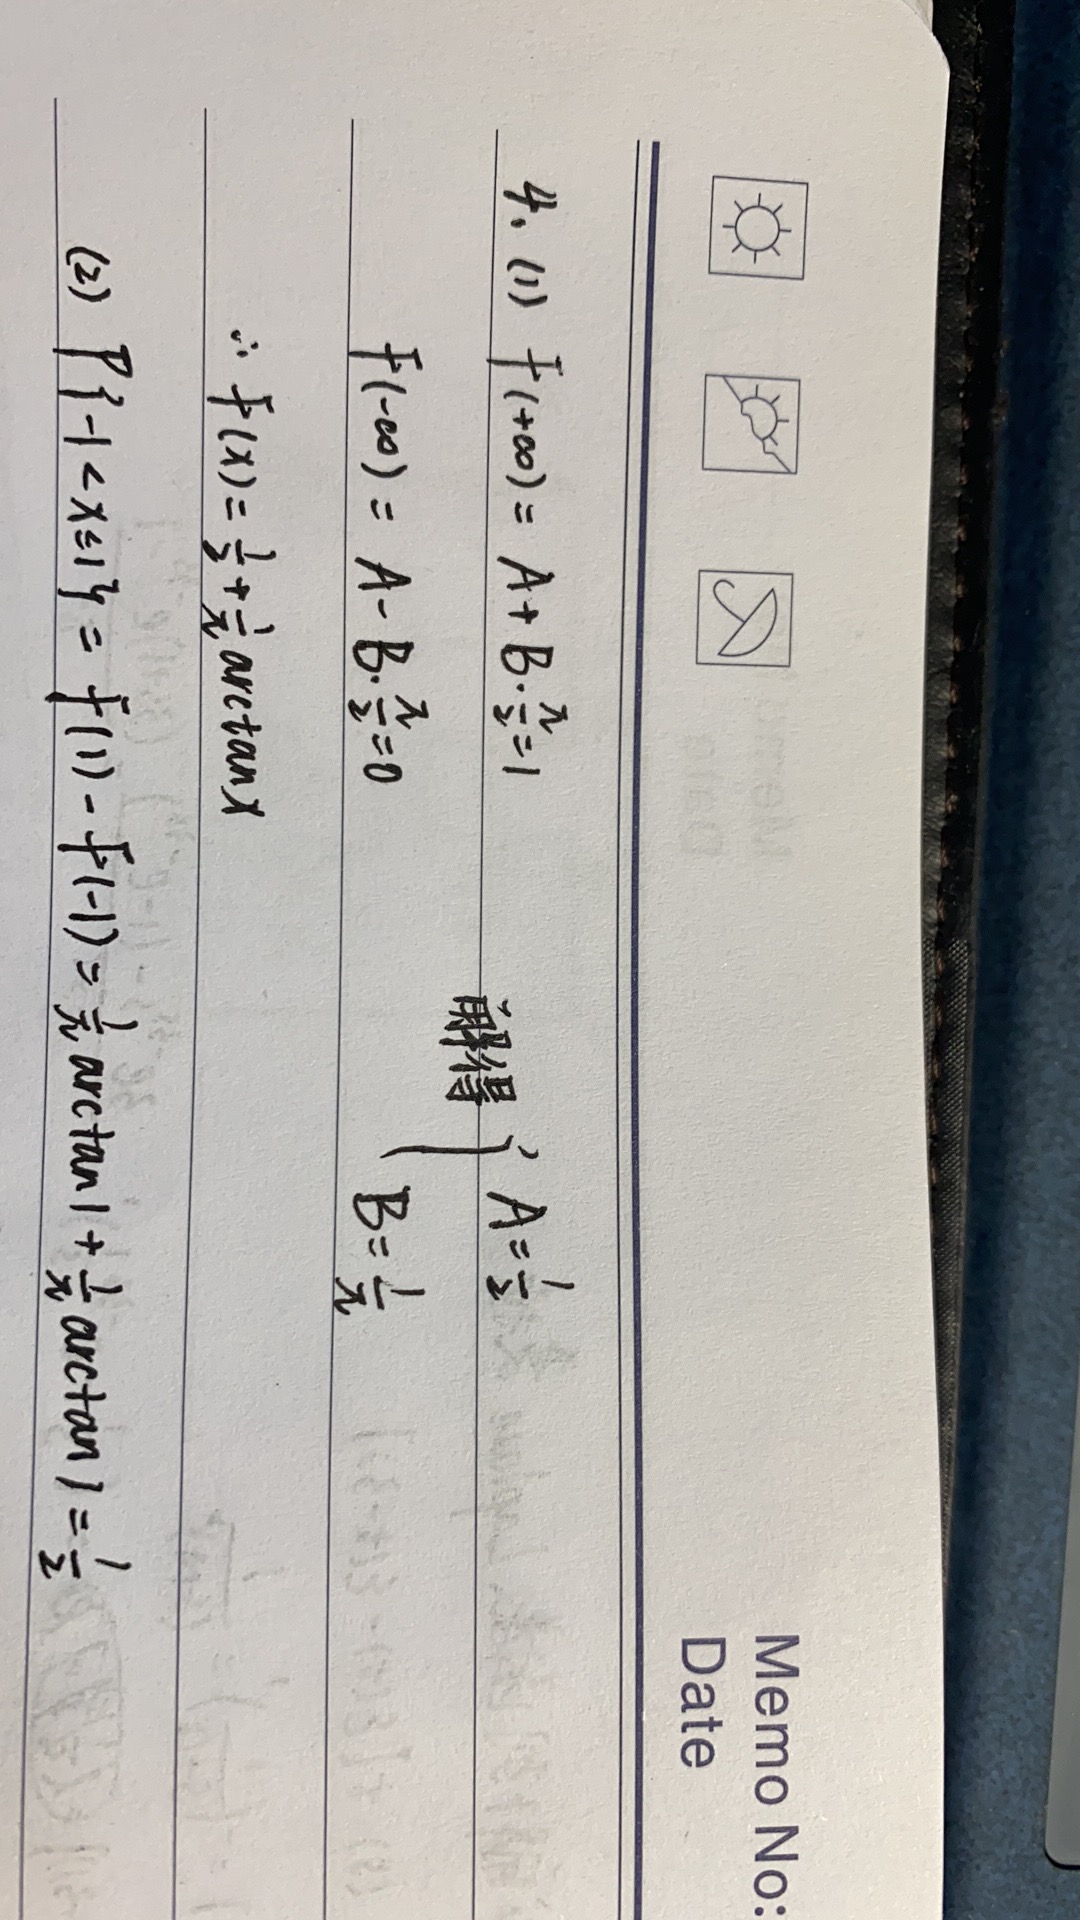 Memo No:
Date
4. (1) F(+∞) = A + B·π/2 = 1
F(-∞) = A - B·π/2 = 0
解得 { A = 1/2
B = 1/π
∴ F(x) = 1/2 + 1/π arctanx
(2) P{-1 < x ≤ 1} = F(1) - F(-1) = 1/π arctan1 + 1/π arctan1 = 1/2